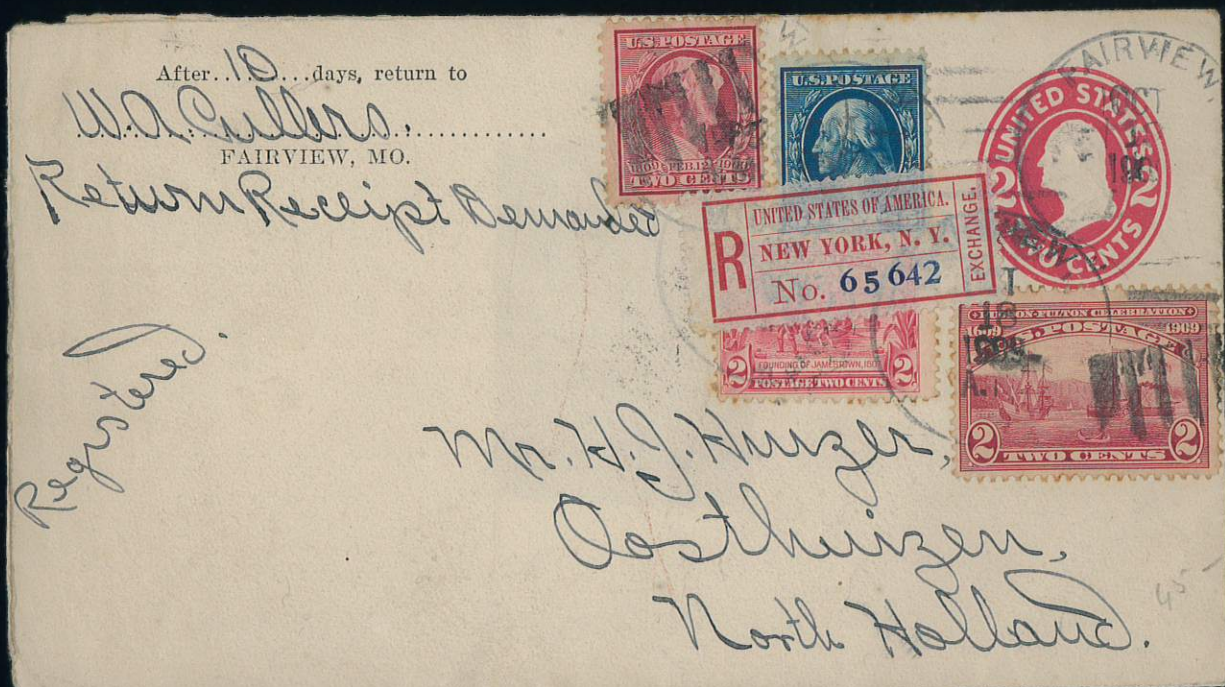 After 10 days, return to
W.A. Cullers,
FAIRVIEW, MO.
Return Receipt Demanded
Registered.
U.S. POSTAGE
1809 FEB. 12 1909
TWO CENTS
U.S. POSTAGE
UNITED STATES
2 2
TWO CENTS
FAIRVIEW.
OCT
R
UNITED STATES OF AMERICA.
NEW YORK, N. Y.
No. 65642
EXCHANGE.
FOUNDING OF JAMESTOWN, 1607
2 POSTAGE TWO CENTS 2
FULTON CELEBRATION
1609 1909
U.S. POSTAGE
2 TWO CENTS 2
18
Mr. H. J. Huizer,
Oosthuizen,
North Holland.
45-